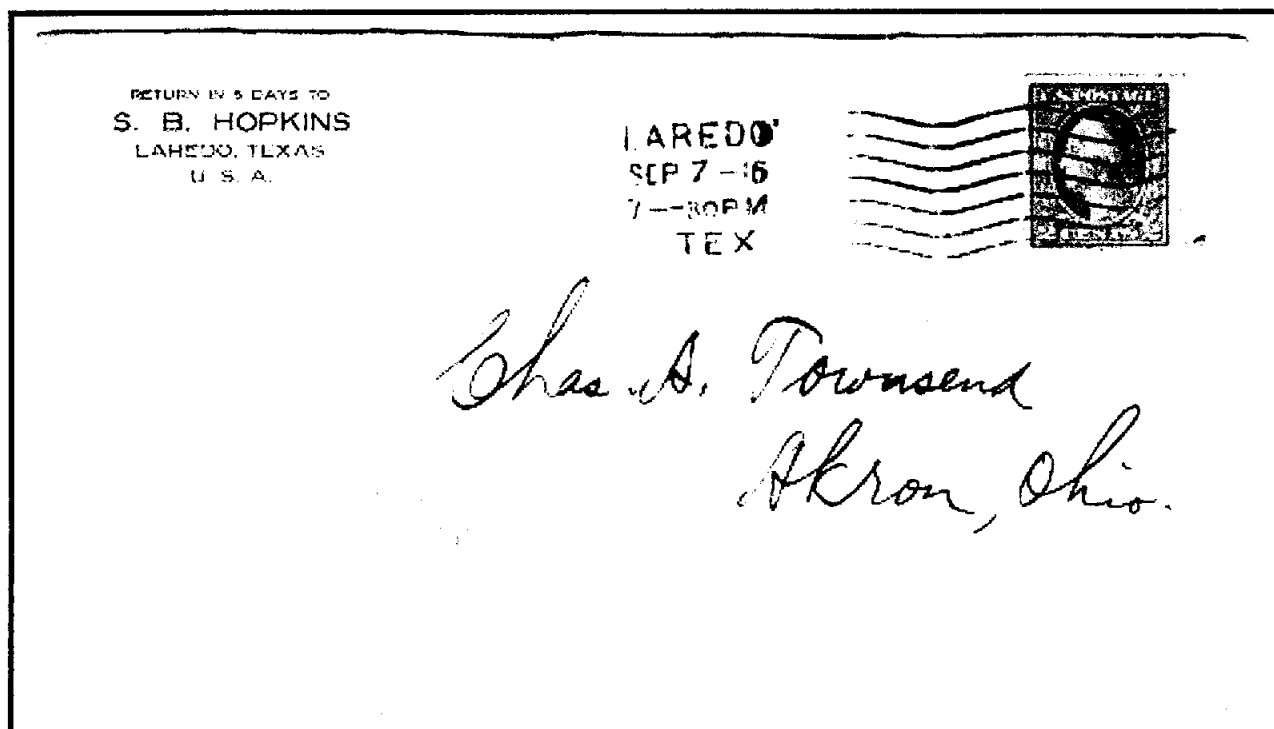 RETURN IN 5 DAYS TO
S. B. HOPKINS
LAREDO, TEXAS
U. S. A.
LAREDO
SEP 7 - 16
7 - 30 PM
TEX
U.S. POSTAGE
Chas. A. Townsend
Akron, Ohio.